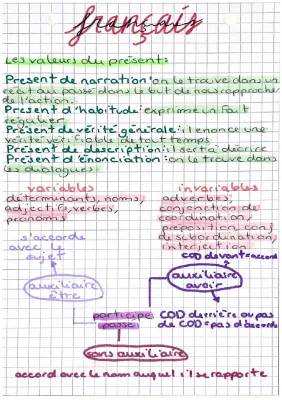 français
Les valeurs du présent:
Présent de narration: on le trouve dans un
récit au passé dans le but de nous rapprocher
de l'action.
Présent d'habitude: exprime un fait
régulier
Présent de vérité générale: il énonce une
vérité vérifiable de tout temps
Présent de description: il sert à décrire
Présent d'énonciation: on le trouve dans
les dialogues
variables
déterminants, noms,
adjectifs, verbes,
pronoms
invariables
adverbes,
conjonction de
coordination,
préposition, conj
de subordination,
interjection
s'accorde
avec le
sujet
auxiliaire
être
COD devant=accord
auxiliaire
avoir
participe
passé
COD derrière ou pas
de COD=pas d'accord
sans auxiliaire
accord avec le nom auquel il se rapporte